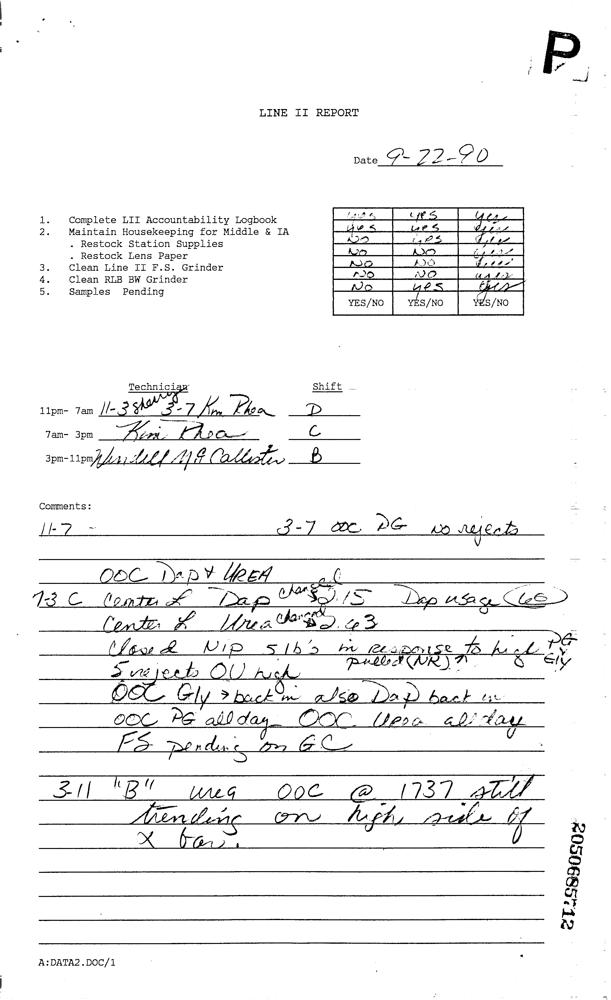 P
LINE II REPORT
Date 9-22-90
1. Complete LII Accountability Logbook
2. Maintain Housekeeping for Middle & IA
. Restock Station Supplies
. Restock Lens Paper
3. Clean Line II F.S. Grinder
4. Clean RLB BW Grinder
5. Samples Pending
yes yes yes
yes yes yes
No yes yes
No No yes
No No yes
No No yes
No yes yes
YES/NO YES/NO YES/NO
Technician Shift
11pm- 7am 11-3 Sherry 3-7 Kim Rhea D
7am- 3pm Kim Rhea C
3pm-11pm Wendell McCallister B
Comments:
11-7 - 3-7 OOC PG no rejects
OOC Dap & UREA
7-3 C Center L Dap changed 2.15 Dap usage
Center L Urea changed 2.43
Closed NIP 5 lb's in response to high PG & Gly
5 rejects OV high pulled (NR)
OOC Gly → back in also Dap back in
OOC PG all day OOC Urea all day
FS pending on GC
3-11 "B" urea OOC @ 1737 still
trending on high side of
X bar.
2050685712
A:DATA2.DOC/1